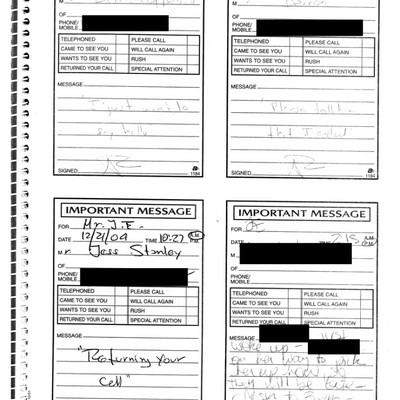 M
OF
PHONE/
MOBILE
TELEPHONED PLEASE CALL
CAME TO SEE YOU WILL CALL AGAIN
WANTS TO SEE YOU RUSH
RETURNED YOUR CALL SPECIAL ATTENTION
MESSAGE
I just want to
say hello
SIGNED 1184
M
OF
PHONE/
MOBILE
TELEPHONED PLEASE CALL
CAME TO SEE YOU WILL CALL AGAIN
WANTS TO SEE YOU RUSH
RETURNED YOUR CALL SPECIAL ATTENTION
MESSAGE
Please tell him
that I called
SIGNED 1184
IMPORTANT MESSAGE
FOR Mr. J.E.
DATE 12/21/04 TIME 10:27 A.M. P.M.
Mr. Jess Stanley
OF
PHONE/
MOBILE
TELEPHONED PLEASE CALL
CAME TO SEE YOU WILL CALL AGAIN
WANTS TO SEE YOU RUSH
RETURNED YOUR CALL SPECIAL ATTENTION
MESSAGE
"Returning Your
Call"
IMPORTANT MESSAGE
FOR
DATE TIME 2:15 A.M. P.M.
M
OF
PHONE/
MOBILE
TELEPHONED PLEASE CALL
CAME TO SEE YOU WILL CALL AGAIN
WANTS TO SEE YOU RUSH
RETURNED YOUR CALL SPECIAL ATTENTION
MESSAGE
woke up -
on my way to pick
they will be